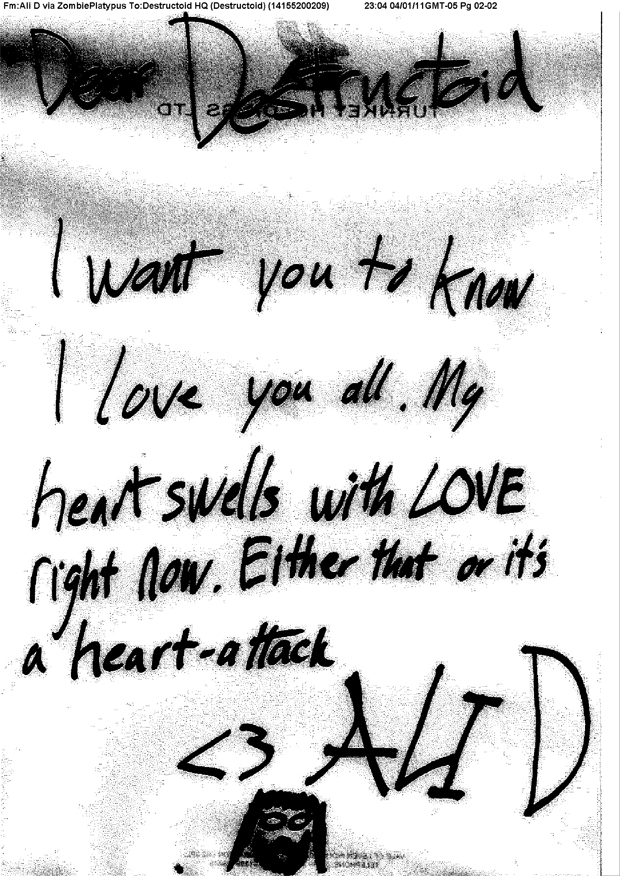 Fm:Ali D via ZombiePlatypus To:Destructoid HQ (Destructoid) (14155200209) 23:04 04/01/11GMT-05 Pg 02-02
Dear Destructoid
TURNKEY LTD
I want you to know
I love you all. My
heart swells with LOVE
right now. Either that or it's
a heart-attack
<3 ALI D
TELEPHONE